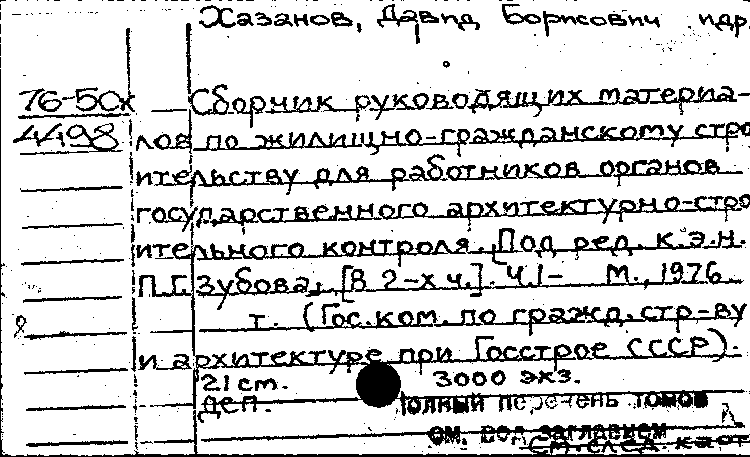 Хазанов, Давид Борисович и др.
76-50к — Сборник руководящих материа-
4498 лов по жилищно-гражданскому стро
ительству для работников органов
государственного архитектурно-стро
ительного контроля. [Под ред. к.э.н.
П.Г. Зубова, [В 2-х ч.]. Ч.1- М., 1976
т. (Гос.ком. по гражд. стр-ву
и архитектуре при Госстрое СССР).
21 cm. 3000 экз.
ДЕП. Полный перечень томов
см. под заглавием
см. след. карт